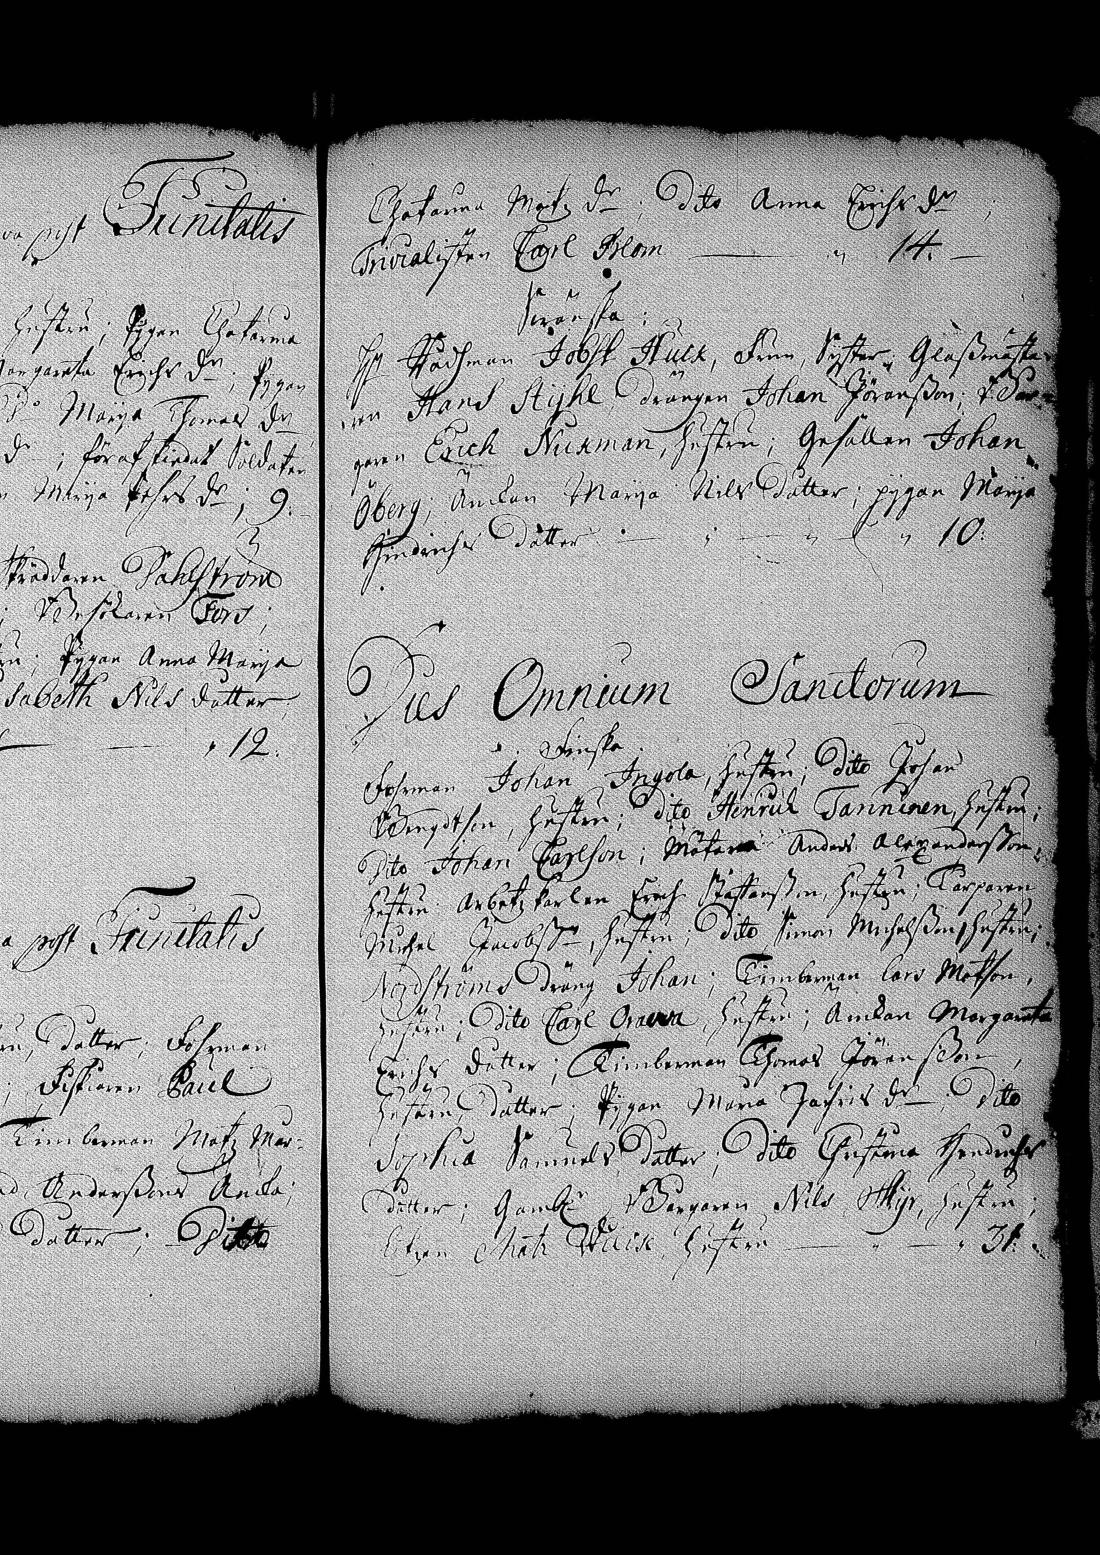 post Trinitatis
hustru; Pygan Chatarina
Margareta Erichs dr; Pygan
Marja Thomas dr
; föraf skiedat Soldaten
Marja Pehrs dr; 9.
Skräddaren Dahlström
; Besökaren Fors;
Pygan Anna Marja
Elisabeth Nils datter
12.
post Trinitatis
datter; Fohrman
; Fiskaren Paul
Timberman Matz Mar-
Anderssons Enka;
datter; Ditto
Chatarina Matz dr. Dito Anna Erichs dr;
Trivialisten Carl Blom 14.
Swenska;
Rådhman Jobst Hulk, Frun, Syster; Glaßmästa-
ren Hans Stÿhl, drängen Johan Jöransson; Bor-
garen Erich Nukman, hustru; Gesällen Johan
Öberg; Änckan Marja Nils datter; pygan Marja
Hindrichs datter 10.
Dies Omnium Sanctorum
Finska
Fohrman Johan Ingola, hustru; Dito Johan
Bengdtson, hustru; dito Henrich Tanninen, hustru;
Dito Johan Carlson; Anders Alexandersson,
hustru. Arbetzkarlen Erich Staffansson, hustru; Karparen
Michel Jacobss, hustru; dito Simon Michelsson, hustru;
Nordströms dräng Johan; Timberman Lars Matson,
hustru; dito Carl, hustru; Änckan Margareta
Erichs datter; Timberman Thomas Jöransson,
hustru, datter; Pygan Maria dr. Dito
Sophia Samuels datter; dito Christina Hendrichs
datter; Gambl Borgaren Nils, hustru;
Matz, hustru 31.